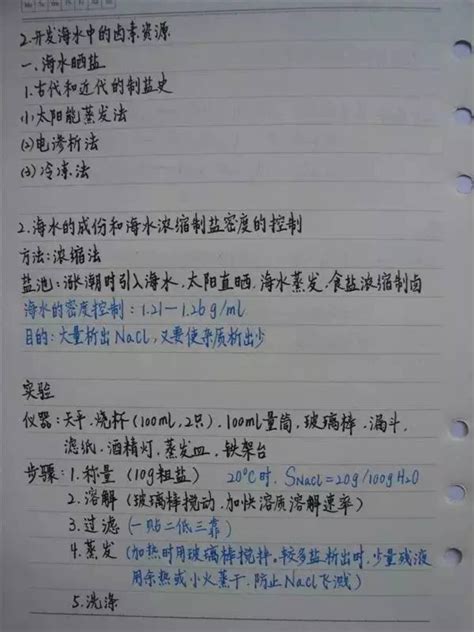 2.开发海水中的卤素资源
一、海水晒盐
1.古代和近代的制盐史
(1)太阳能蒸发法
(2)电渗析法
(3)冷冻法
2.海水的成份和海水浓缩制盐密度的控制
方法:浓缩法
盐池:涨潮时引入海水.太阳直晒.海水蒸发.食盐浓缩制卤
海水的密度控制:1.21—1.26g/ml
目的:大量析出NaCl,又要使杂质析出少
实验
仪器:天平.烧杯(100ml,2只).100ml量筒.玻璃棒.漏斗.
滤纸.酒精灯.蒸发皿.铁架台
步骤:1.称量(10g粗盐) 20°C时,SNaCl=20g/100gH2O
2.溶解(玻璃棒搅动.加快溶质溶解速率)
3.过滤(一贴二低三靠)
4.蒸发(加热时用玻璃棒搅拌.较多盐析出时,少量残液
用余热或小火蒸干.防止NaCl飞溅)
5.洗涤